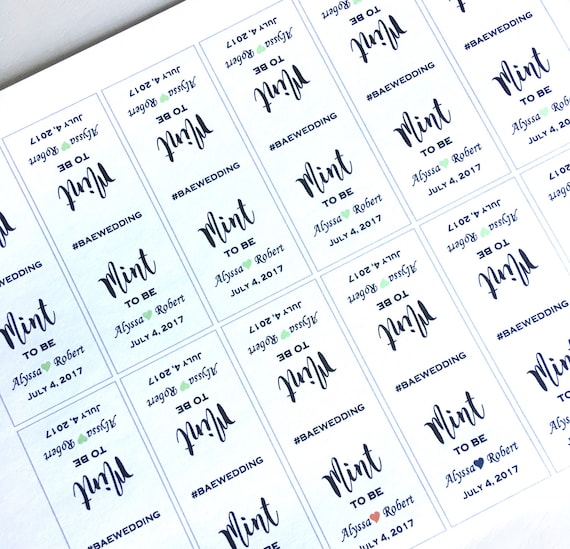 EWEDDING
Mint
TO BE
Alyssa Robert
JULY 4, 2017
JULY 4, 2017
Alyssa Robert
TO BE
Mint
#BAEWEDDING
Mint
TO BE
Alyssa Robert
JULY 4, 2017
JULY 4, 2017
Alyssa Robert
TO BE
Mint
#BAEWEDDING
Mint
TO BE
Alyssa Robert
JULY 4, 2017
JULY 4, 2017
Alyssa Robert
TO BE
Mint
#BAEWEDDING
Mint
TO BE
Alyssa Robert
JULY 4, 2017
Alyssa Robert
TO BE
Mint
#BAEWEDDING
Mint
TO BE
Alyssa Robert
JULY 4, 2017
Mint
#BAEWEDDING
Mint
TO BE
Alyssa Robert
JULY 4, 2017
JULY 4, 2017
Alyssa Robert
TO BE
Mint
#BAEWEDDING
JULY 4, 2017
Alyssa Robert
TO BE
Mint
#BAEWEDDING
Mint
JULY 4, 2017
Alyssa Robert
TO BE
Mint
#BAEWEDDING
Mint
TO BE
Alyssa Robert
JULY 4, 2017
JULY 4, 2017
Alyssa Robert
TO BE
Mint
#BAEWEDDING
Mint
TO BE
Alyssa Robert
JULY 4, 2017
JULY 4, 2017
Alyssa Robert
TO BE
Mint
#BAEWEDDING
Mint
TO BE
Alyssa